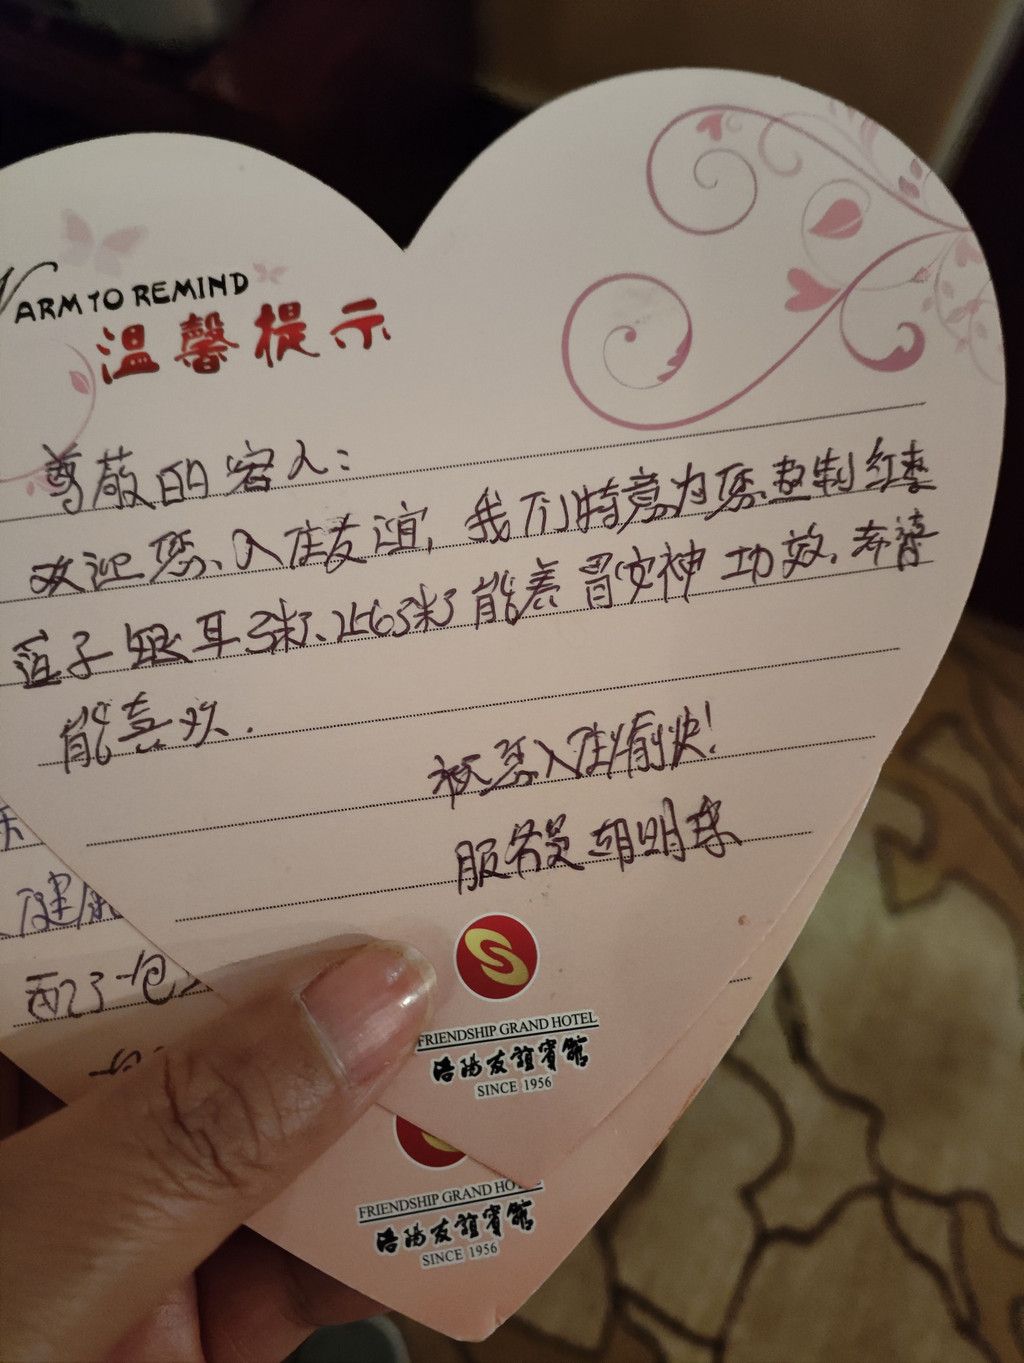 WARM TO REMIND
温馨提示
尊敬的客人：
欢迎您入住友谊，我们特意为您熬制红枣
莲子银耳粥、此粥能养胃安神功效，希望
能喜欢．
祝您入住愉快！
服务员 胡明
FRIENDSHIP GRAND HOTEL
洛阳友谊宾馆
SINCE 1956
健康
配了一包
FRIENDSHIP GRAND HOTEL
洛阳友谊宾馆
SINCE 1956